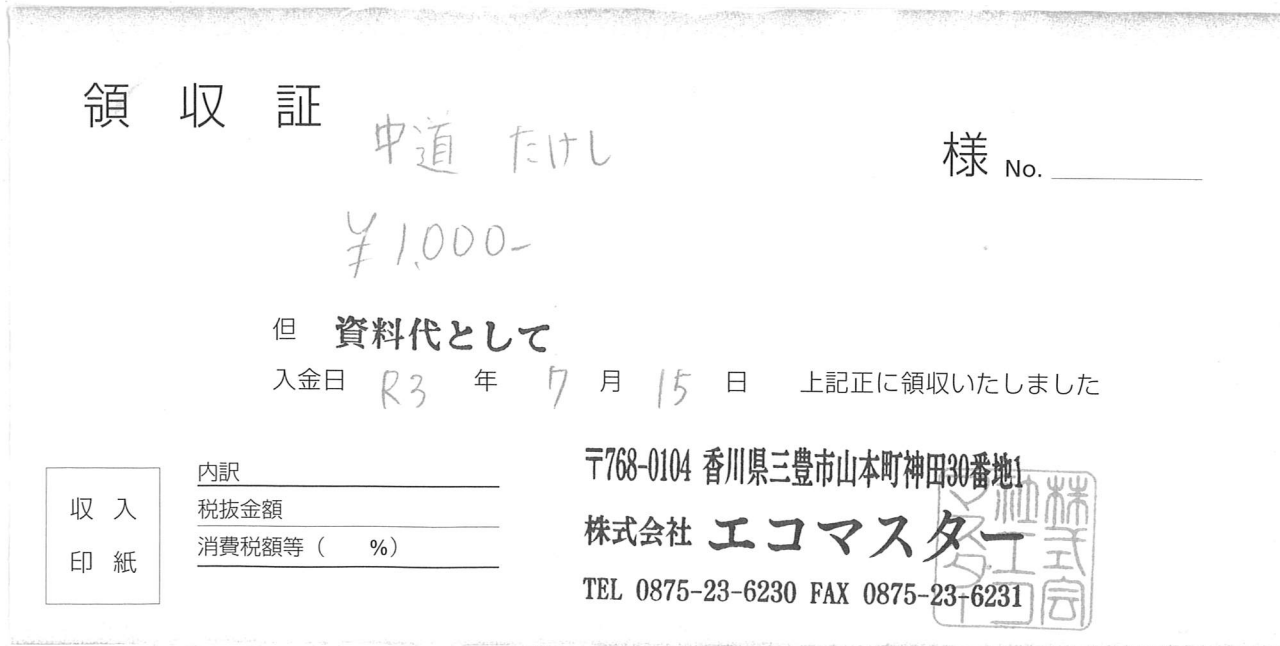 領収証
中道 たけし 様 No.
¥1,000-
但 資料代として
入金日 R3 年 7 月 15 日 上記正に領収いたしました
収入
印紙
内訳
税抜金額
消費税額等( %)
〒768-0104 香川県三豊市山本町神田30番地1
株式会社 エコマスター
TEL 0875-23-6230 FAX 0875-23-6231
株式会
社エコ
マスター